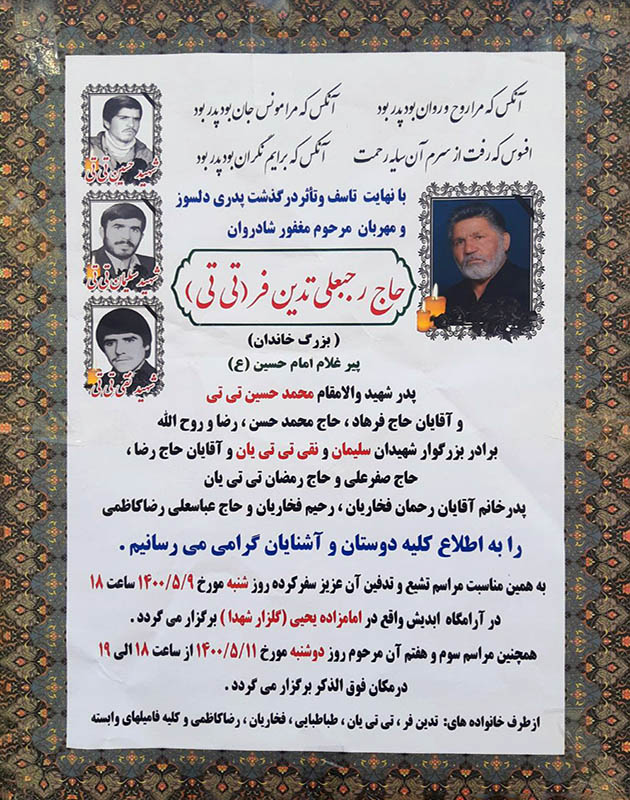 آنکس که مرا روح و روان بود پدر بود
آنکس که مرا مونس جان بود پدر بود
افسوس که رفت از سرم آن سایه رحمت
آنکس که برایم نگران بود پدر بود
با نهایت تاسف وتأثر درگذشت پدری دلسوز
و مهربان مرحوم مغفور شادروان
حاج رجبعلی تدین فر (تی تی)
(بزرگ خاندان)
پیر غلام امام حسین (ع)
پدر شهید والامقام محمد حسین تی تی
و آقایان حاج فرهاد ، حاج محمد حسن ، رضا و روح الله
برادر بزرگوار شهیدان سلیمان و نقی تی تی یان و آقایان حاج رضا ،
حاج صفرعلی و حاج رمضان تی تی یان
پدرخانم آقایان رحمان فخاریان ، رحیم فخاریان و حاج عباسعلی رضاکاظمی
را به اطلاع کلیه دوستان و آشنایان گرامی می رسانیم .
به همین مناسبت مراسم تشیع و تدفین آن عزیز سفرکرده روز شنبه مورخ ۱۴۰۰/۵/۹ ساعت ۱۸
در آرامگاه ابدیش واقع در امامزاده یحیی (گلزار شهدا ) برگزار می گردد .
همچنین مراسم سوم و هفتم آن مرحوم روز دوشنبه مورخ ۱۴۰۰/۵/۱۱ از ساعت ۱۸ الی ۱۹
درمکان فوق الذکر برگزار می گردد .
ازطرف خانواده های: تدین فر ، تی تی یان ، طباطبایی ، فخاریان ، رضاکاظمی و کلیه فامیلهای وابسته
شهید حسین تی تی
شهید سلیمان تی تی
شهید نقی تی تی